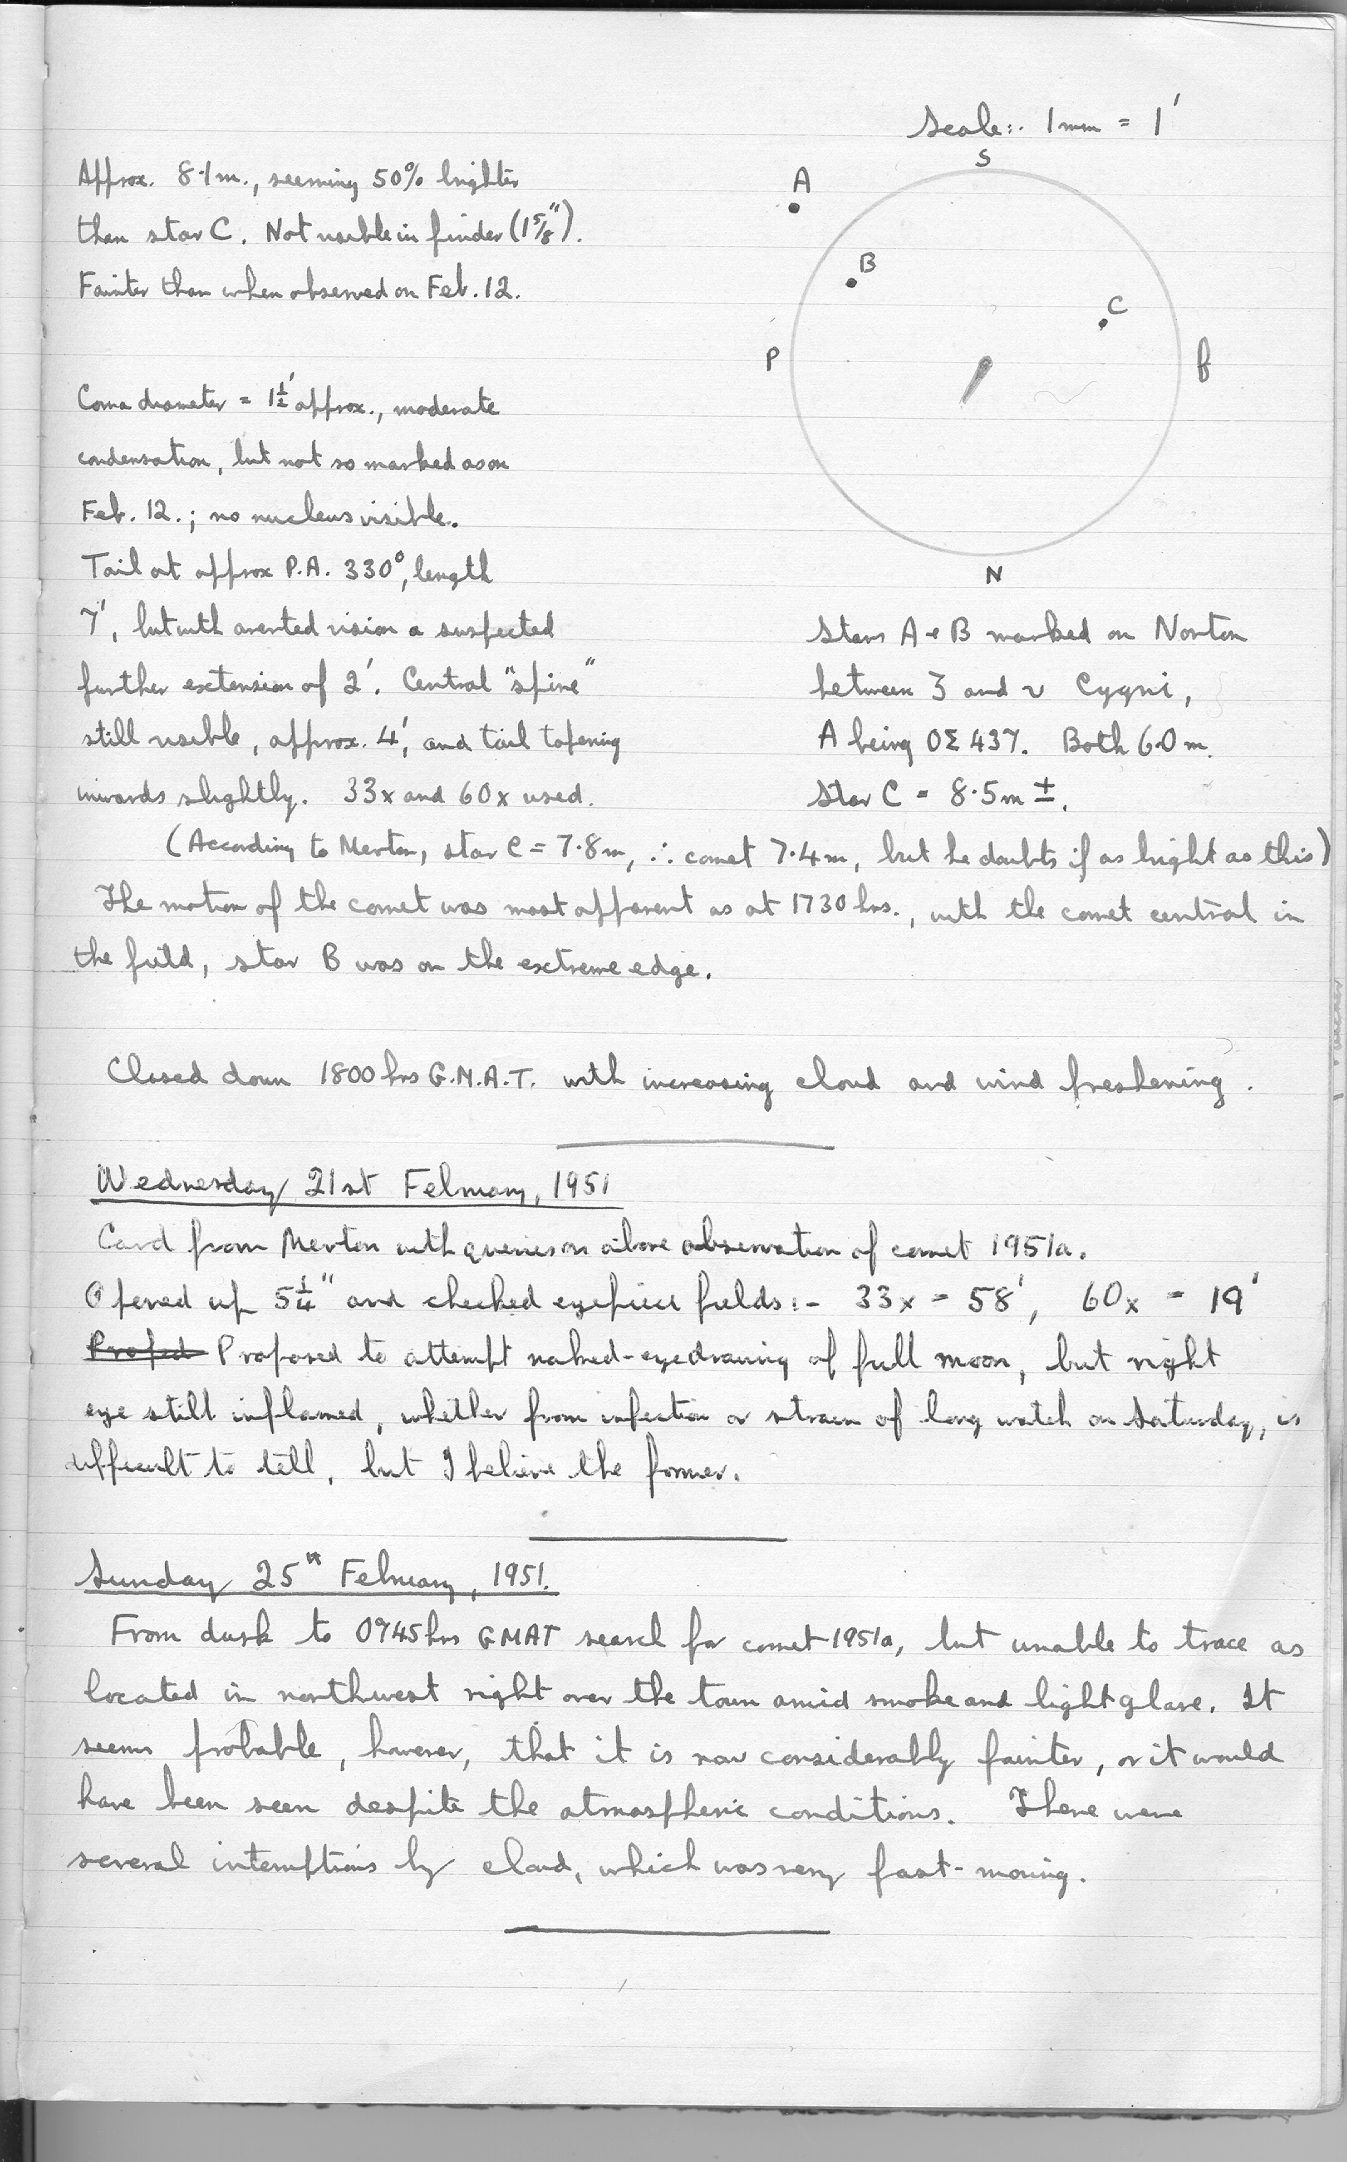 Scale:- 1mm = 1'
S
A
B
C
P
f
N
Approx. 8.1m., seeming 50% brighter
than star C. Not visible in finder (1⅝").
Fainter than when observed on Feb. 12.
Coma diameter = 1½' approx., moderate
condensation, but not so marked as on
Feb. 12.; no nucleus visible.
Tail at approx P.A. 330°, length
7', but with averted vision a suspected
further extension of 2'. Central "spine"
still visible, approx. 4', and tail tapering
inwards slightly. 33x and 60x used.
Stars A & B marked on Norton
between ζ and ν Cygni,
A being OΣ 437. Both 6.0m.
Star C = 8.5m ±.
(According to Merton, star C = 7.8m, ∴ comet 7.4m, but he doubts if as bright as this)
The motion of the comet was most apparent as at 1730 hrs., with the comet central in
the field, star B was on the extreme edge.
Closed down 1800 hrs G.M.A.T. with increasing cloud and wind freshening.
Wednesday 21st February, 1951
Card from Merton with queries on above observation of comet 1951a.
Opened up 5¼" and checked eyepiece fields:- 33x = 58', 60x = 19'
Proposed to attempt naked-eye drawing of full moon, but right
eye still inflamed, whether from infection or strain of long watch on Saturday, is
difficult to tell, but I believe the former.
Sunday 25th February, 1951.
From dusk to 0745 hrs GMAT search for comet 1951a, but unable to trace as
located in northwest right over the town amid smoke and light glare. It
seems probable, however, that it is now considerably fainter, or it would
have been seen despite the atmospheric conditions. There were
several interruptions by cloud, which was very fast-moving.